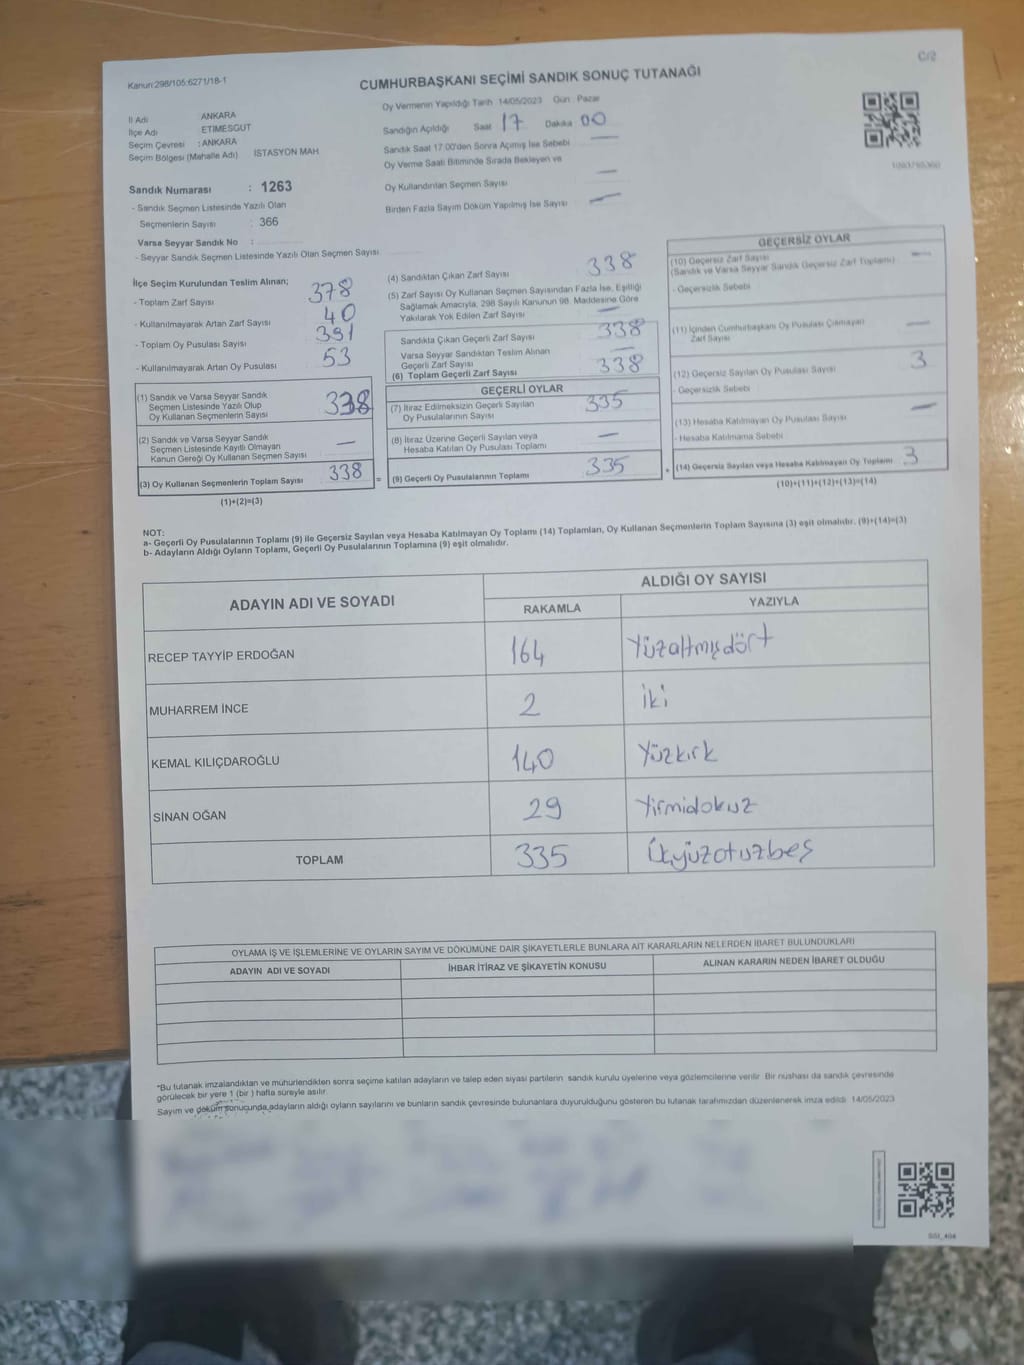 C/2
Kanun:298/105:6271/18-1
CUMHURBAŞKANI SEÇİMİ SANDIK SONUÇ TUTANAĞI
İl Adı ANKARA
İlçe Adı ETİMESGUT
Seçim Çevresi : ANKARA
Seçim Bölgesi (Mahalle Adı) İSTASYON MAH
Sandık Numarası : 1263
- Sandık Seçmen Listesinde Yazılı Olan
Seçmenlerin Sayısı : 366
Varsa Seyyar Sandık No :
- Seyyar Sandık Seçmen Listesinde Yazılı Olan Seçmen Sayısı
Oy Vermenin Yapıldığı Tarih 14/05/2023 Gün : Pazar
Sandığın Açıldığı Saat 17 Dakika 00
Sandık Saat 17:00'den Sonra Açılmış İse Sebebi —
Oy Verme Saati Bitiminde Sırada Bekleyen ve
Oy Kullandırılan Seçmen Sayısı —
Birden Fazla Sayım Döküm Yapılmış İse Sayısı —
İlçe Seçim Kurulundan Teslim Alınan;
- Toplam Zarf Sayısı 378
- Kullanılmayarak Artan Zarf Sayısı 40
- Toplam Oy Pusulası Sayısı 391
- Kullanılmayarak Artan Oy Pusulası 53
(1) Sandık ve Varsa Seyyar Sandık
Seçmen Listesinde Yazılı Olup
Oy Kullanan Seçmenlerin Sayısı 338
(2) Sandık ve Varsa Seyyar Sandık
Seçmen Listesinde Kayıtlı Olmayan
Kanun Gereği Oy Kullanan Seçmen Sayısı —
(3) Oy Kullanan Seçmenlerin Toplam Sayısı 338
(1)+(2)=(3)
(4) Sandıktan Çıkan Zarf Sayısı 338
(5) Zarf Sayısı Oy Kullanan Seçmen Sayısından Fazla İse, Eşitliği
Sağlamak Amacıyla, 298 Sayılı Kanunun 98. Maddesine Göre
Yakılarak Yok Edilen Zarf Sayısı —
Sandıkta Çıkan Geçerli Zarf Sayısı 338
Varsa Seyyar Sandıktan Teslim Alınan
Geçerli Zarf Sayısı —
(6) Toplam Geçerli Zarf Sayısı 338
GEÇERLİ OYLAR
(7) İtiraz Edilmeksizin Geçerli Sayılan
Oy Pusulalarının Sayısı 335
(8) İtiraz Üzerine Geçerli Sayılan veya
Hesaba Katılan Oy Pusulası Toplamı —
= (9) Geçerli Oy Pusulalarının Toplamı 335
GEÇERSİZ OYLAR
(10) Geçersiz Zarf Sayısı —
(Sandık ve Varsa Seyyar Sandık Geçersiz Zarf Toplamı)
- Geçersizlik Sebebi
(11) İçinden Cumhurbaşkanı Oy Pusulası Çıkmayan
Zarf Sayısı —
(12) Geçersiz Sayılan Oy Pusulası Sayısı 3
- Geçersizlik Sebebi
(13) Hesaba Katılmayan Oy Pusulası Sayısı —
- Hesaba Katılmama Sebebi
+ (14) Geçersiz Sayılan veya Hesaba Katılmayan Oy Toplamı 3
(10)+(11)+(12)+(13)=(14)
NOT:
a- Geçerli Oy Pusulalarının Toplamı (9) ile Geçersiz Sayılan veya Hesaba Katılmayan Oy Toplamı (14) Toplamları, Oy Kullanan Seçmenlerin Toplam Sayısına (3) eşit olmalıdır. (9)+(14)=(3)
b- Adayların Aldığı Oyların Toplamı, Geçerli Oy Pusulalarının Toplamına (9) eşit olmalıdır.
ADAYIN ADI VE SOYADI
ALDIĞI OY SAYISI
RAKAMLA YAZIYLA
RECEP TAYYİP ERDOĞAN 164 Yüzaltmışdört
MUHARREM İNCE 2 iki
KEMAL KILIÇDAROĞLU 140 Yüzkırk
SİNAN OĞAN 29 Yirmidokuz
TOPLAM 335 Üçyüzotuzbeş
OYLAMA İŞ VE İŞLEMLERİNE VE OYLARIN SAYIM VE DÖKÜMÜNE DAİR ŞİKAYETLERLE BUNLARA AİT KARARLARIN NELERDEN İBARET BULUNDUKLARI
ADAYIN ADI VE SOYADI İHBAR İTİRAZ VE ŞİKAYETİN KONUSU ALINAN KARARIN NEDEN İBARET OLDUĞU
*Bu tutanak imzalandıktan ve mühürlendikten sonra seçime katılan adayların ve talep eden siyasi partilerin sandık kurulu üyelerine veya gözlemcilerine verilir. Bir nüshası da sandık çevresinde
görülecek bir yere 1 (bir ) hafta süreyle asılır.
Sayım ve döküm sonucunda,adayların aldığı oyların sayılarını ve bunların sandık çevresinde bulunanlara duyurulduğunu gösteren bu tutanak tarafımızdan düzenlenerek imza edildi. 14/05/2023